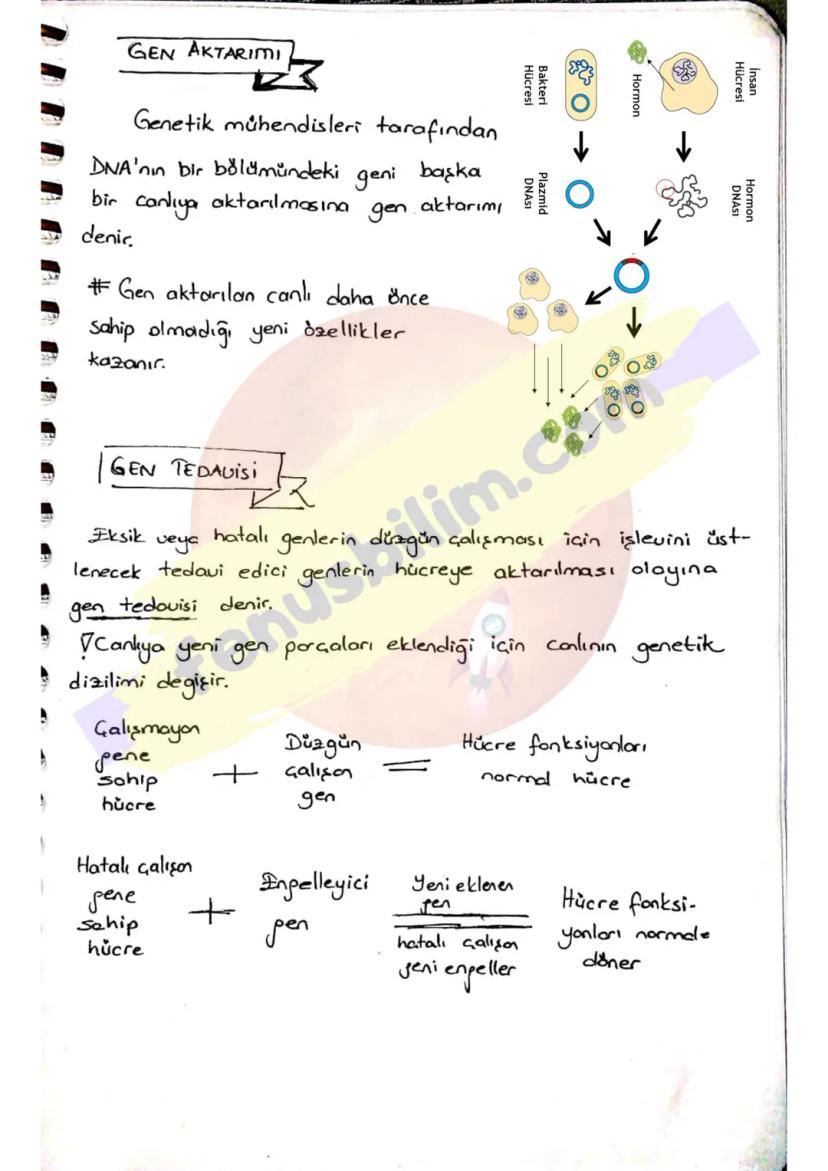 GEN AKTARIMI
Genetik mühendisleri tarafından
DNA'nın bir bölümündeki geni başka
bir canlıya aktarılmasına gen aktarımı
denir.
# Gen aktarılan canlı daha önce
sahip olmadığı yeni özellikler
kazanır.
İnsan
Hücresi
Hormon
Bakteri
Hücresi
Hormon
DNAsı
Plazmid
DNAsı
GEN TEDAVİSİ
Eksik veya hatalı genlerin düzgün çalışması için işlevini üst-
lenecek tedavi edici genlerin hücreye aktarılması olayına
gen tedavisi denir.
Canlıya yeni gen parçaları eklendiği için canlının genetik
dizilimi değişir.
Çalışmayan
gene
sahip
hücre
+
Düzgün
çalışan
gen
=
Hücre fonksiyonları
normal hücre
Hatalı çalışan
gene
sahip
hücre
+
Enpelleyici
gen
Yeni eklenen
gen
hatalı çalışan
geni enpeller
Hücre fonksi-
yonları normale
döner
fenusbilim.com